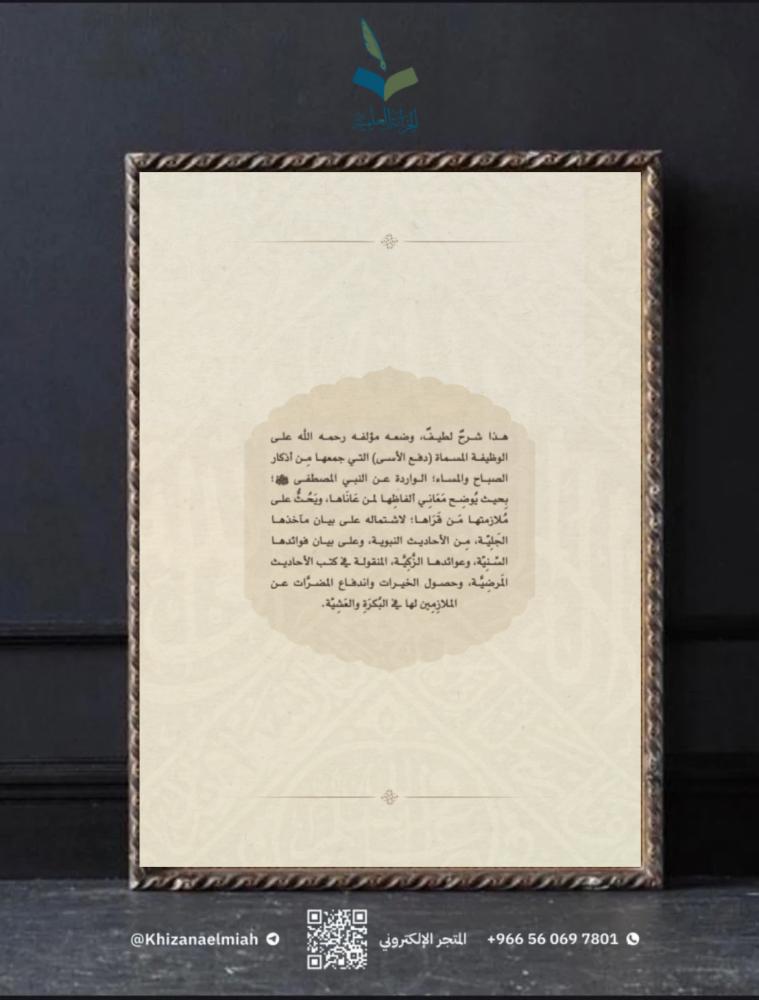 الخزانة العلمية
هذا شرحٌ لطيفٌ، وضعه مؤلفه رحمه الله على
الوظيفة المسماة (دفع الأسى) التي جمعها مِن أذكار
الصباح والمساء؛ الواردة عن النبي المصطفى ﷺ؛
بِحيث يُوضِح مَعَانِي ألفاظِها لمن عَانَاها، ويَحُثُّ على
مُلازمتها مَن قَرَاها؛ لاشتماله على بيان مآخذها
الجَلِيّة، مِن الأحاديث النبوية، وعلى بيان فوائدها
السَّنِيّة، وعوائدها الزَّكِيَّة، المنقولة في كتب الأحاديث
المَرضِيَّة، وحصول الخيرات واندفاع المضرَّات عن
الملازِمِين لها في البُكرَةِ والعَشِيَّة.
+966 56 069 7801 المتجر الإلكتروني @Khizanaelmiah